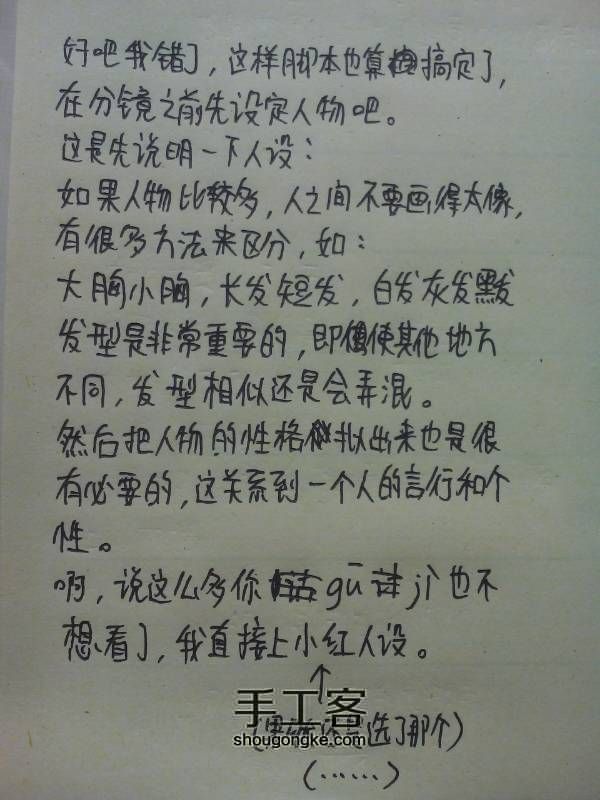 好吧我错了，这样脚本也算搞定了，
在分镜之前先设定人物吧。
这是先说明一下人设：
如果人物比较多，人之间不要画得太像，
有很多方法来区分，如：
大胸小胸，长发短发，白发灰发黑发
发型是非常重要的，即使其他地方
不同，发型相似还是会弄混。
然后把人物的性格拟出来也是很
有必要的，这关系到一个人的言行和个
性。
啊，说这么多你gū jì也不
想看了，我直接上小红人设。
↑
手工客
(选了那个)
shougongke.com
(……)